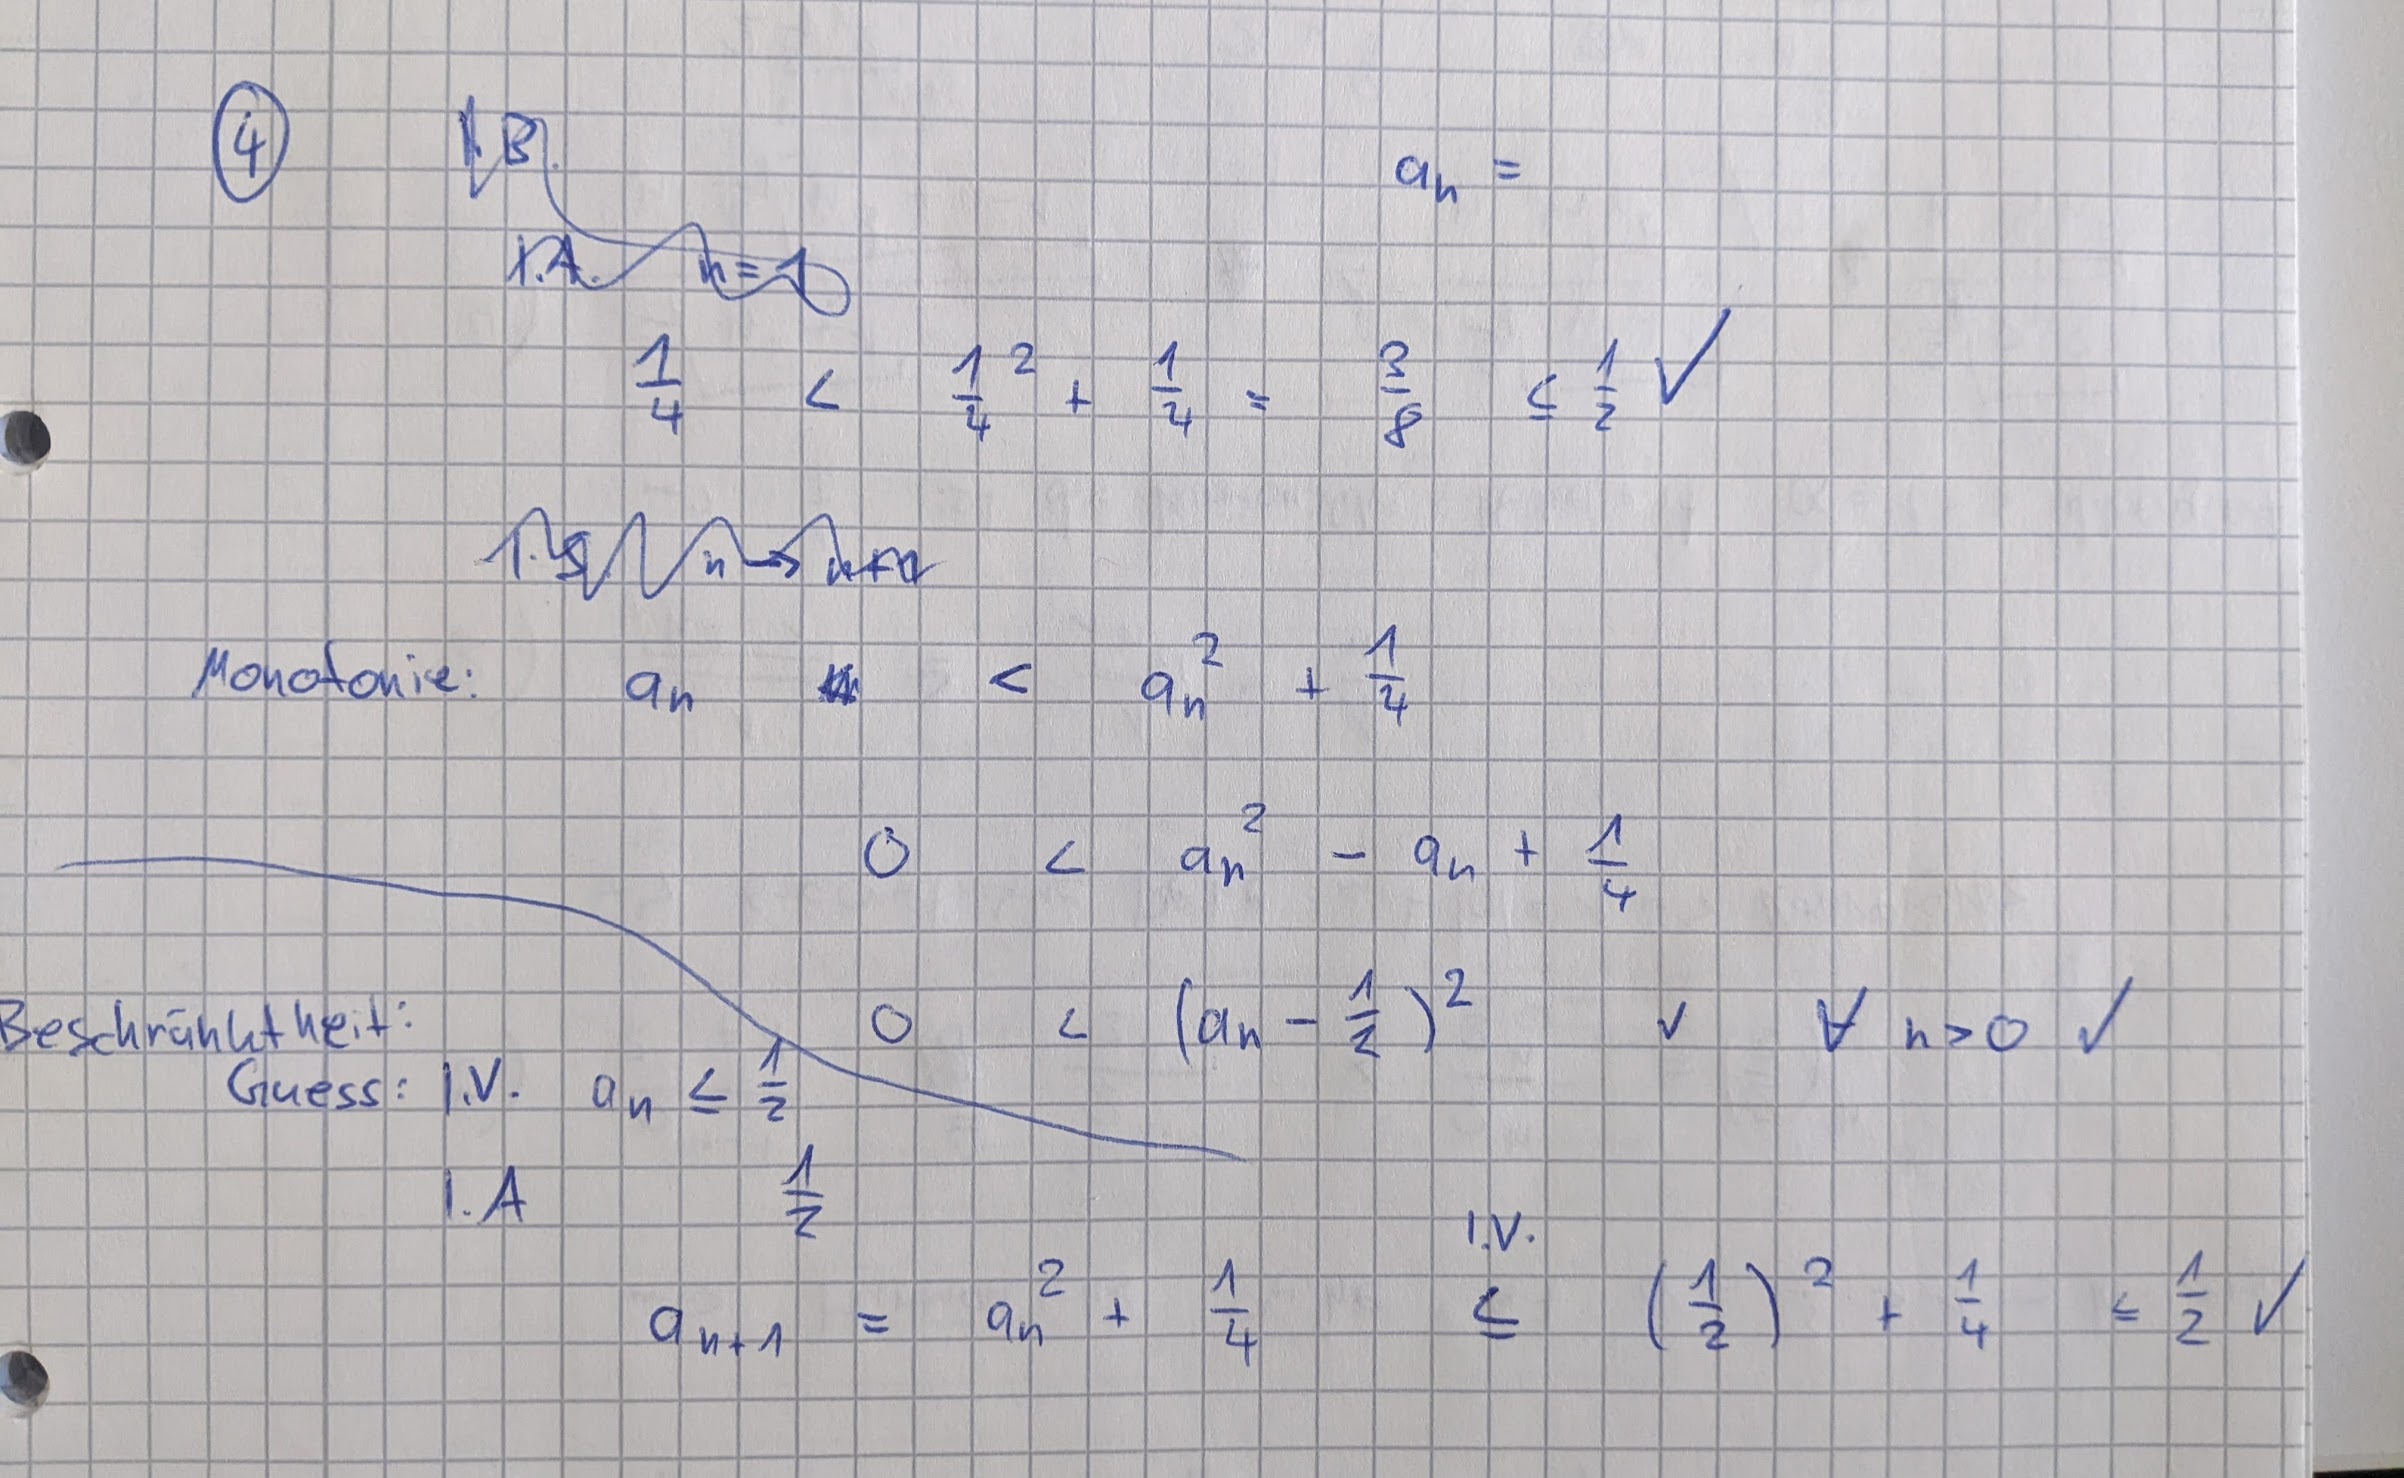 4 I.B. aₙ =
I.A. n=1
1/4 < 1/4² + 1/4 = 3/8 ≤ 1/2 ✓
I.S n→n+1
Monotonie: aₙ < aₙ² + 1/4
0 < aₙ² - aₙ + 1/4
0 < (aₙ - 1/2)² ✓ ∀ n>0 ✓
Beschränktheit:
Guess: I.V. aₙ ≤ 1/2
I.A 1/2
aₙ₊₁ = aₙ² + 1/4 I.V. ≤ (1/2)² + 1/4 ≤ 1/2 ✓